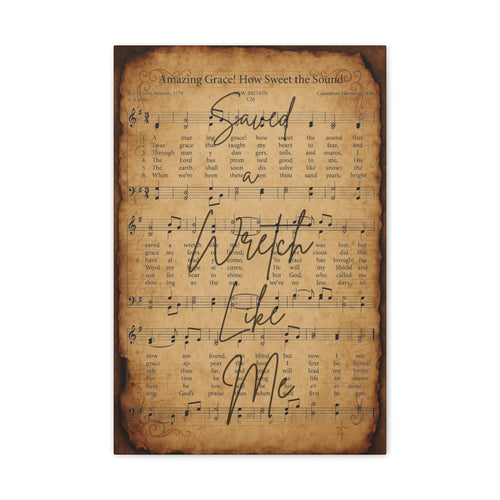 Amazing Grace! How Sweet the Sound
John Newton, 1779
NEW BRITAIN
CM
Columbian Harmony,
Saved
1. A mazing grace! how sweet the sound that,
2. 'Twas grace that taught my heart to fear, and
3. Through man y dan gers, toils, and snares, I
4. The Lord has prom ised good to me, His
5. The earth shall soon dis solve like snow; the
6. When we've been there ten thou sand years, bright
a
Wretch
saved a wretch like was lost, but
grace my fears relieved; cious did that
have al read y come; 'tis grace has brought me
Word my hope se cures; He will my Shield and
sun for bear to shine; but God, who called me
shin ing as the we've no less days
Like
now am found, blind, but now I see.
grace ap pear the hour I first be lieved!
safe thus far, and will lead me home.
Por tion be long as life en dures.
here be low, will be for ev er mine.
sing God's praise than when first be gun.
Me